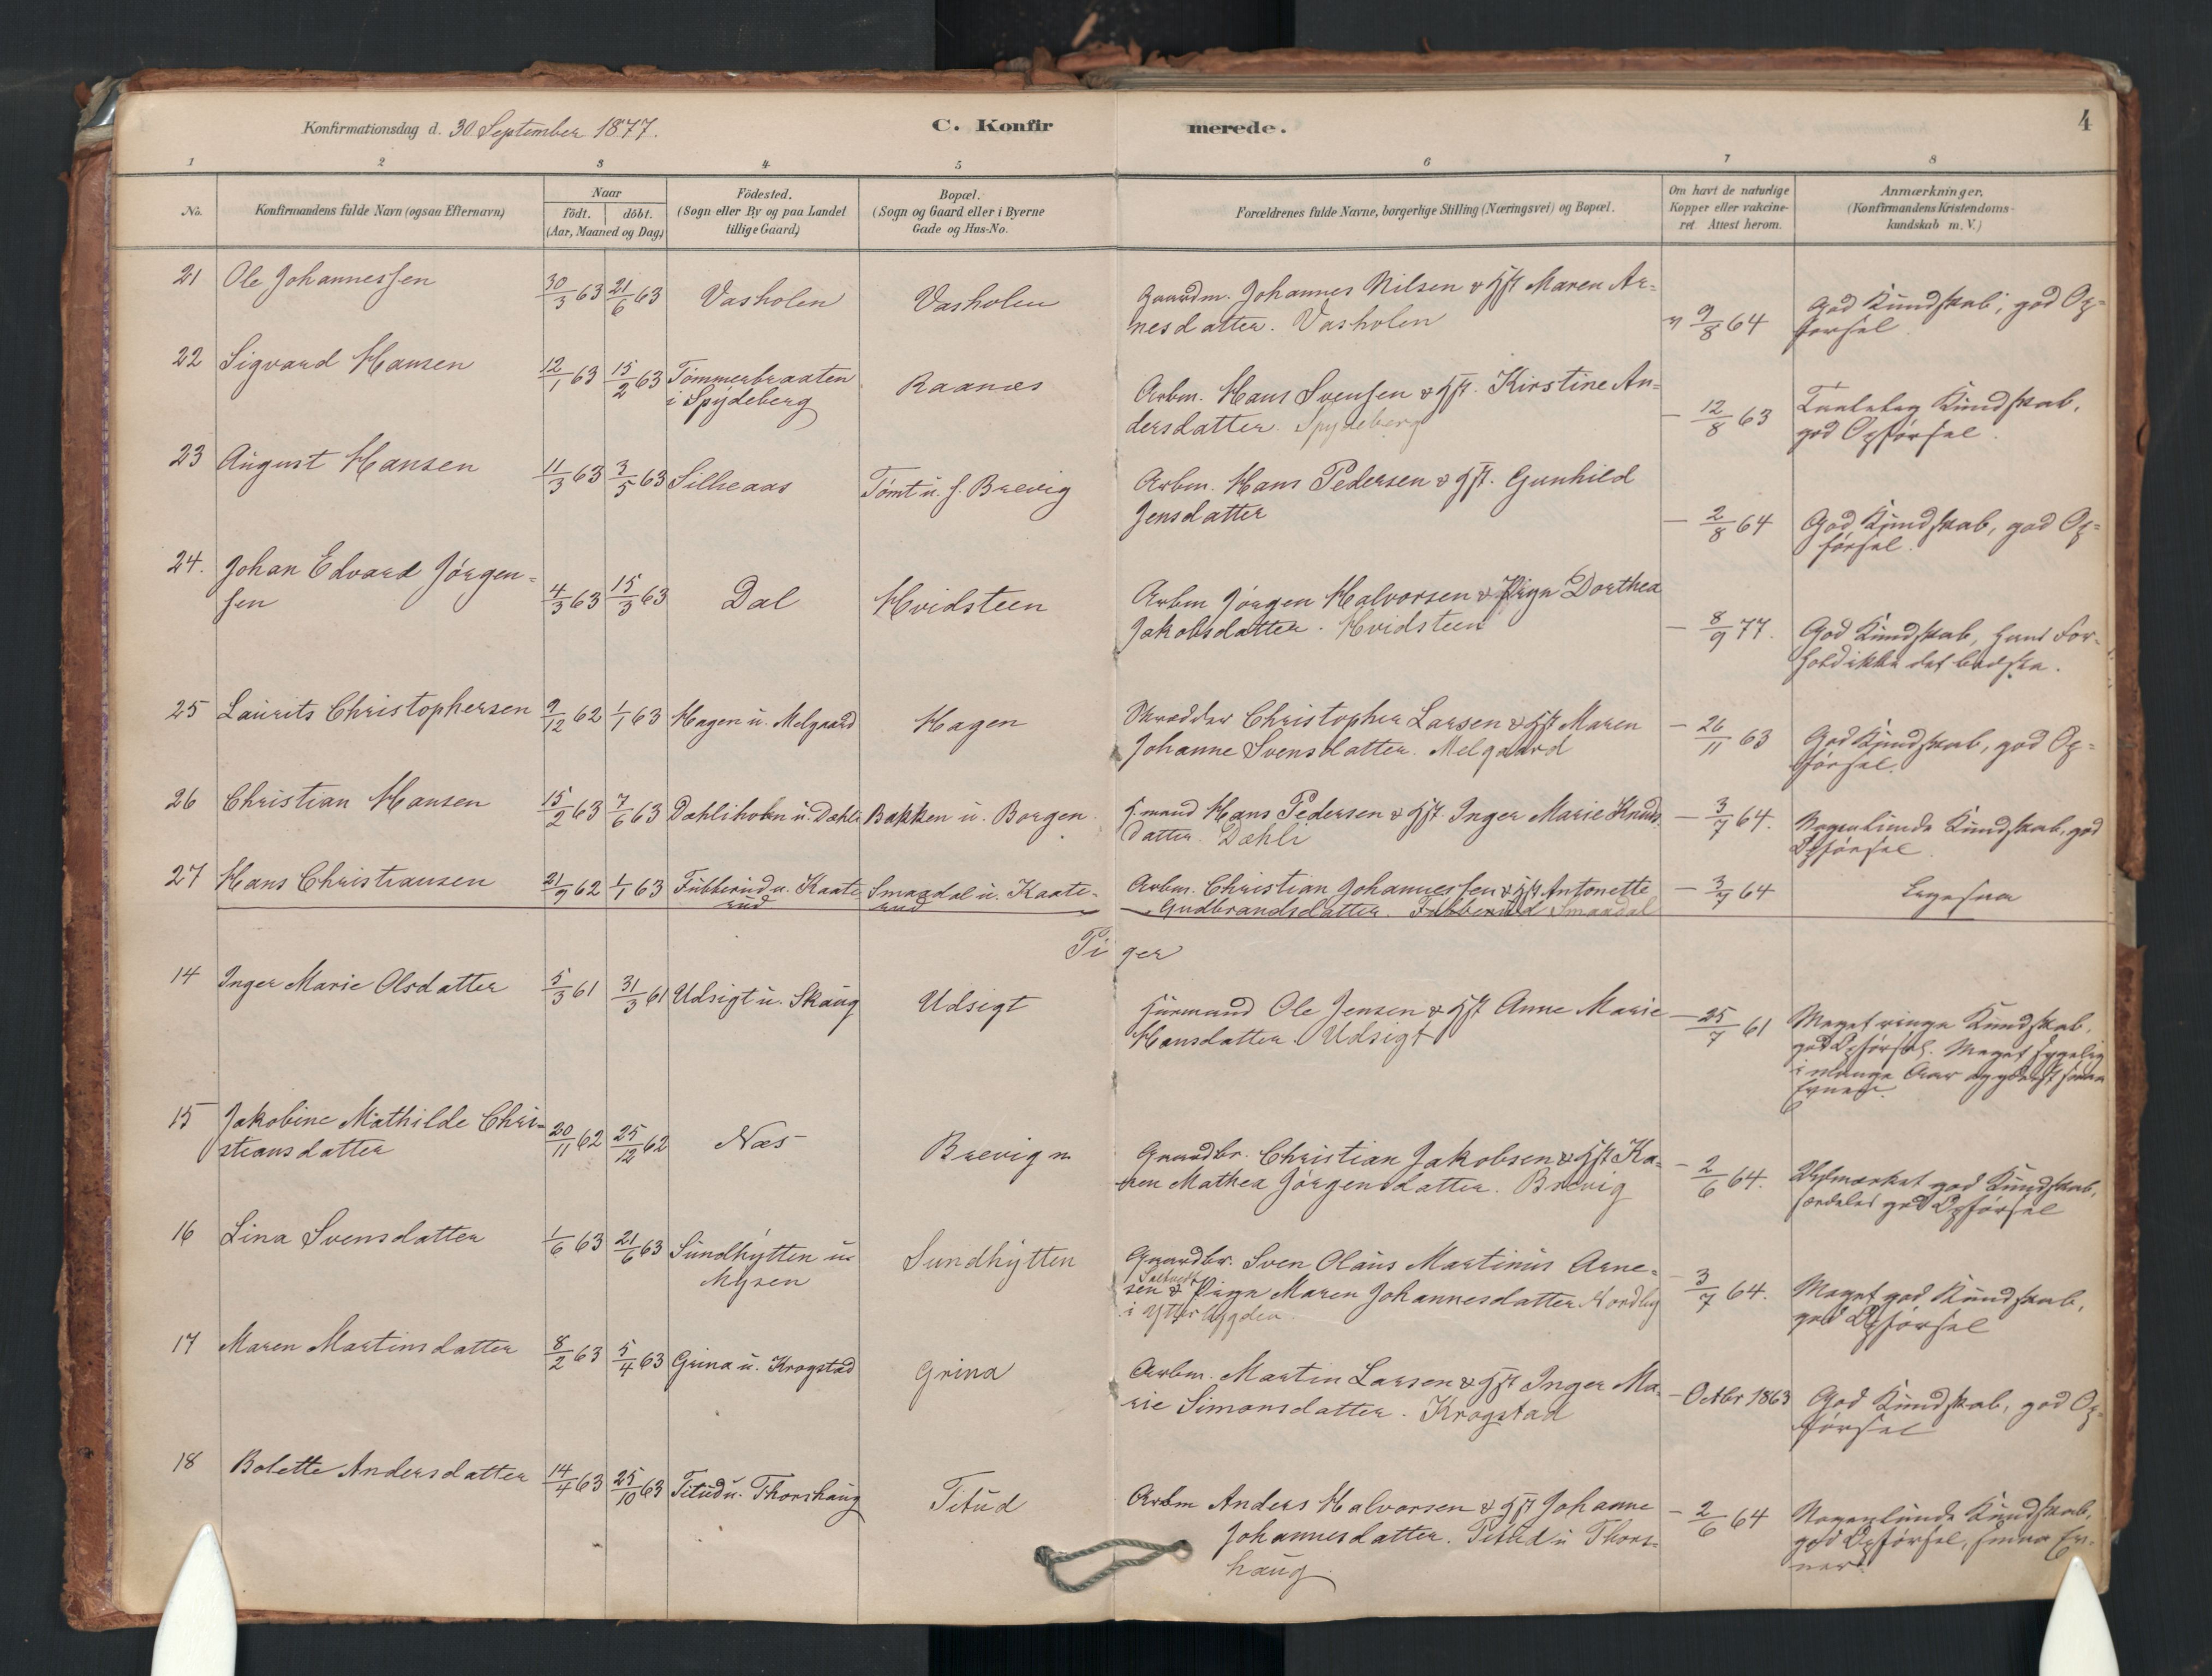 Konfirmationsdag d. 30 September 1877.
C. Konfirmerede.
4
1 2 3 4 5 6 7 8
No.
Konfirmandens fulde Navn (ogsaa Efternavn)
Naar
födt. döbt.
(Aar, Maaned og Dag)
Födested.
(Sogn eller By og paa Landet
tillige Gaard)
Bopæl.
(Sogn og Gaard eller i Byerne
Gade og Hus-No.
Forældrenes fulde Navne, borgerlige Stilling (Næringsvei) og Bopæl.
Om havt de naturlige
Kopper eller vakcine-
ret Attest herom.
Anmærkninger.
(Konfirmandens Kristendoms-
kundskab m. V.)
21 Ole Johannessen 30/3 63 21/6 63 Vasholen Vasholen
Gaardm. Johannes Nilsen & Hst Maren Ar-
nesdatter. Vasholen
" 9/8 64
God Kundskab; god Op-
førsel
22 Sigvard Hansen 12/1 63 15/2 63 Tømmerbraaten
i Spydeberg
Raanæs
Arbm. Hans Svensen & Hst. Kirstine An-
dersdatter. Spydeberg
- 12/8 63
Taalelig Kundskab,
god Opførsel.
23 August Hansen 11/3 63 3/5 63 Silleaas Tomt u. s. Brevig
Arbm. Hans Pedersen & Hst. Gunhild
Jensdatter
- 2/8 64
God Kundskab, god Op-
førsel.
24. Johan Edvard Jørgen-
sen
4/3 63 15/3 63 Dal Hvidsteen
Arbm Jørgen Halvorsen & Pige Dorthea
Jakobsdatter. Hvidsteen
- 8/9 77.
God Kundskab, hans For-
hold ikke det bedste.
25 Laurits Christophersen 9/12 62 1/1 63 Hagen u. Melgaard Hagen
Skrædder Christopher Larsen & Hst Maren
Johanne Svensdatter. Melgaard
- 26/11 63
God Kundskab, god Op-
førsel.
26 Christian Hansen 15/2 63 7/6 63 Dæhliholm u. Dæhli Bakken u. Borgen.
H.mand Hans Pedersen & Hst. Inger Marie Knuds
datter. Dæhli
- 3/7 64.
Nogenlunde Kundskab, god
Opførsel.
27 Hans Christiansen 21/9 62 1/1 63 Fubberud u. Kaate-
rud
Smaadal u. Kaate-
rud
Arbm. Christian Johannessen & Hst Antonette
Gudbrandsdatter. Fubberud Smaadal
- 3/7 64
Ligesaa
Piger
14 Inger Marie Olsdatter 5/3 61 31/3 61 Udsigt u. Skaug Udsigt
Huusmand Ole Jensen & Hst Anne Marie
Hansdatter. Udsigt
- 25/7 61
Meget ringe Kundskab,
god Opførsel. Meget sygelig
i mange Aar og yderst smaa
Evner.
15 Jakobine Mathilde Chri-
stiansdatter
20/11 62 25/12 62 Næs Brevig n
Gaardbr. Christian Jakobsen & Hst Ka-
ren Mathea Jørgensdatter. Brevig
- 2/6 64.
Udmærket god Kundskab,
særdeles god Opførsel
16 Lina Svensdatter 1/6 63 21/6 63 Sundhytten u
Mysen
Sundhytten
Gaardbr. Sven Olaus Martinus Arne-
sen & Pige Maren Johannesdatter Nordby
i Ytter
- 3/7 64.
Meget god Kundskab,
god Opførsel
17 Maren Martinsdatter 8/2 63 5/4 63 Grina u. Krogstad Grina
Arbm. Martin Larsen & Hst Inger Ma-
rie Simonsdatter. Krogstad
- Octbr 1863
God Kundskab, god Op-
førsel
18 Bolette Andersdatter 14/4 63 25/10 63 Titud u. Thorshaug Titud
Arbm Anders Halvorsen & Hst Johanne
Johannesdatter. Titud u Thors-
haug.
- 2/6 64
Nogenlunde Kundskab,
god Opførsel, smaa Ev-
ner.